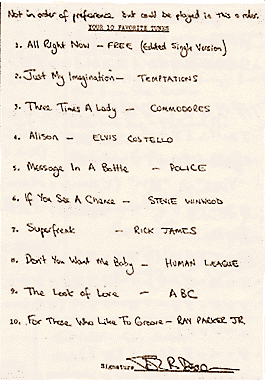 Not in order of preference but could be played in this order.
YOUR 10 FAVORITE TUNES
1. All Right Now - FREE (Edited Single Version)
2. Just My Imagination - TEMPTATIONS
3. Three Times A Lady - COMMODORES
4. Alison - ELVIS COSTELLO
5. Message In A Bottle - POLICE
6. If You See A Chance - STEVIE WINWOOD
7. Superfreak - RICK JAMES
8. Don't You Want Me Baby - HUMAN LEAGUE
9. The Look of Love - ABC
10. For Those Who Like To Groove - RAY PARKER JR
Signature